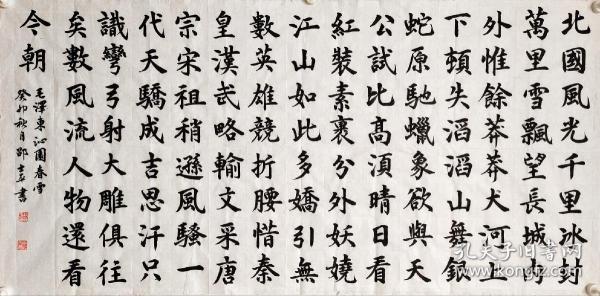 北國風光千里冰封
萬里雪飄望長城內
外惟餘莽莽大河上
下頓失滔滔山舞銀
蛇原馳蠟象欲與天
公試比高須晴日看
紅裝素裹分外妖嬈
江山如此多嬌引無
數英雄競折腰惜秦
皇漢武略輸文采唐
宗宋祖稍遜風騷一
代天驕成吉思汗只
識彎弓射大雕俱往
矣數風流人物還看
今朝
毛澤東沁園春雪
癸卯秋月邵士書
孔夫子旧书网